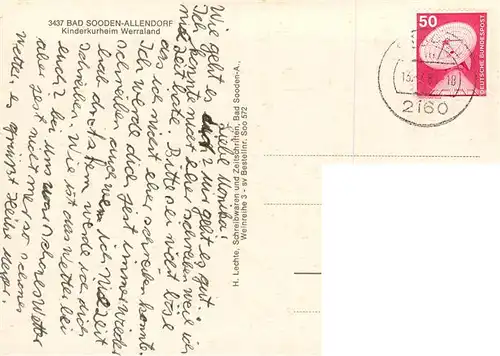 3437 BAD SOODEN-ALLENDORF
Kinderkurheim Werraland
Liebe Monika!
Wie geht es dir? Mir geht es gut.
Ich konnte nicht eher schreiben weil ich
nie Zeit hatte. Bitte sei nicht böse
das ich nicht eher schreiben konnte.
Ich werde dich jetzt immer wieder
schreiben auch wen ich Zeit
hab dratzdem werde ich dich
schreiben. Wie ist das Wetter bei
euch? bei uns war schönes Wetter
aber jetzt nicht mer so schönes
Wetter es grüßt Heike
Meyer.
H. Lechte, Schreibwaren und Zeitschriften, Bad Sooden-A.,
Weinreihe 3 - sv Bestellnr. Soo 572
50
DEUTSCHE BUNDESPOST
2160